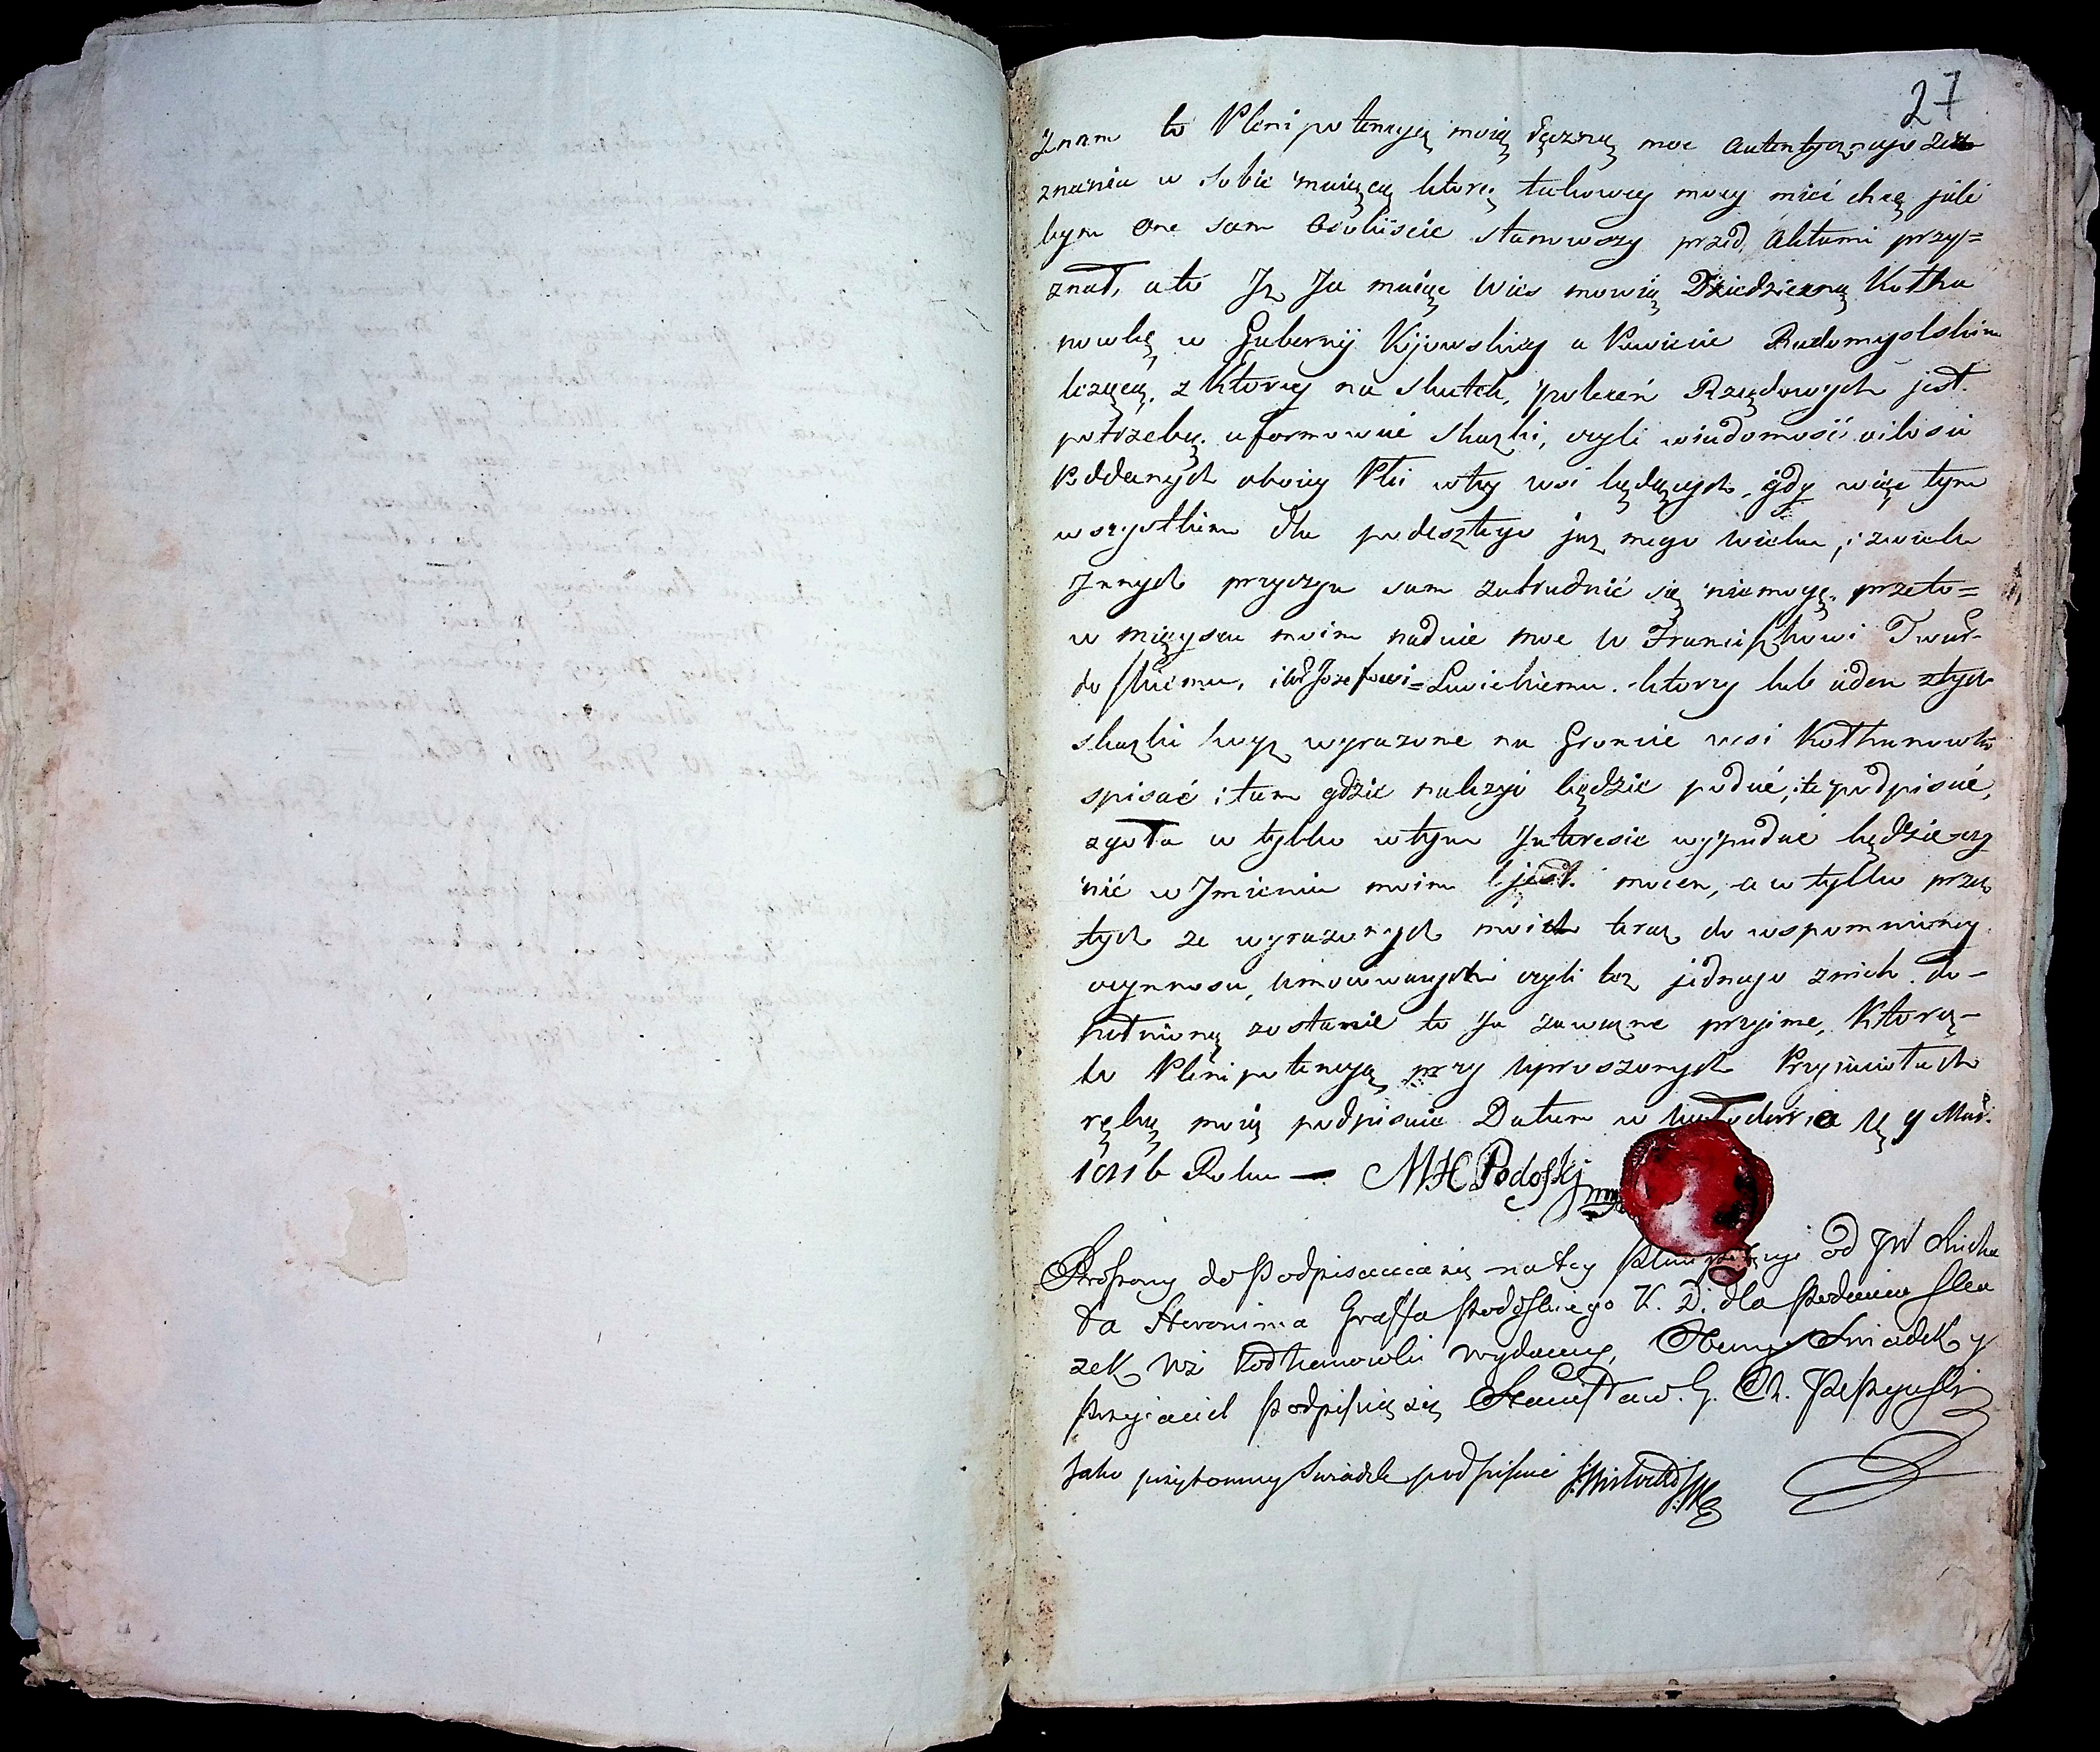 27
Znam to Plenipotencyą moią ręczną moc autentycznego ze
znania w sobie maiącą ktorą takowey mocy mieć chcę jak
bym one sam osobiscie stanowszy przed Aktami przy=
znał, a to Jż Ja maiąc Wies mowią Dziedziczną Kotha
nowkę w Gubernij Kijowskiey a Powiecie Radomyslskim
leżącą, z ktorey na skutek, poleceń Rządowych jest
potrzebą uformować skazki, czyli wiadomość o ilosci
Poddanych oboiey Płci w tey wsi będących, gdy więc tym
wszystkim dla podeszłego już mego wieku, i z wielu
Jnnych przyczyn sam zatrudnić się niemogę, przeto=
w mieyscu moim nadaie moc W Franciszkowi Twar-
doskiemu, i W Jozefowi= Lewickiemu. ktorzy lub ieden z tych
skazki wyż wyrazone na Gruncie wsi Kothanowki
spisać i tam gdzie nalezyć będzie podać, i te podpisać,
zgoła w tylko w tym Jnteresie wypadać będzie czy
nić w Jmieniu moim jest mocen, a co tylko przez
tych ze wyrazonych moich teraz do wspomnioney
czynnosci, umocowanych czyli tez jednego z nich do-
pełnioną zostanie to Ja za wazne przyime, Ktorą-
to Plenipotencyą przy uproszonych Przyiaciołach
ręką moią podpisuię Datum w 9 Mar.
1816 Roku — MH Podoski mp
Proszony do Podpisania się na tey Plenipotencyi od JW Micha
ła Heronima Graffa Podoskiego K. D. dla Podania Ska
zek wsi Kothanowki wydaney, Oboczny Swiadek y
Przyiaciel Podpisuię się Stanisław. G. Ch.
Jako przytomny Swiadek podpisuie